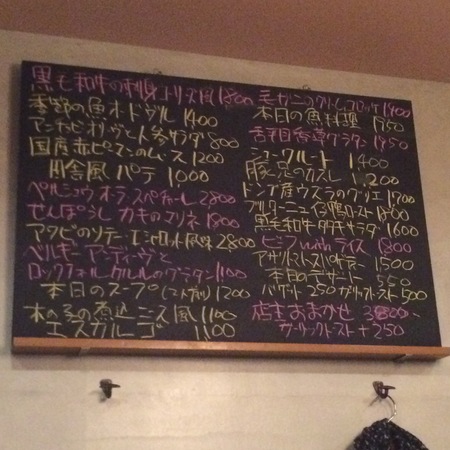 黒毛和牛の刺身 トリュフ風 1800
季節の魚オードヴル 1400
アンチビオリーヴと人参サラダ 800
国産赤ピーマンのムース 1200
田舎風パテ 1000
ペルシュウ オラ・スペチャーレ 2800
せんぽうし カキのフリネ 1800
アワビのソテー エシャロット風味 2800
ベルギーアンディーヴと
ロックフォールクルルのグラタン 1100
本日のスープ 1200
木の子の煮込 ニース風 1100
エスカルゴ 1100
毛ガニのクリームコロッケ 1400
本日の魚料理 1750
舌平目香草グラタン 1750
シュークルート 1400
豚足のカスレ 1200
ドンブ産ウズラのグリエ 1700
ブルターニュ仔鴨ロースト 1800
黒毛和牛タタキサラダ 1600
ビーフ with ライス 1800
アサリトマトスパゲティー 1500
本日のデザート 550
バゲット 250 ガーリックトースト 500
店主おまかせ 3800
ガーリックトースト +250